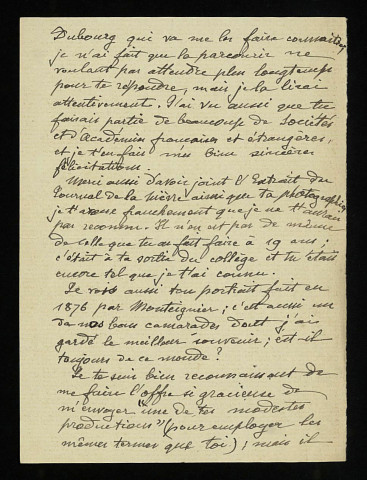 Dubourg qui va me les faire connaître,
je n'ai fait que la parcourir ne
voulant pas attendre plus longtemps
pour te répondre, mais je la lirai
attentivement. J'ai vu aussi que tu
faisais partie de beaucoup de Sociétés
et d'Académies françaises et étrangères,
et je t'en fais mes bien sincères
félicitations.
Merci aussi d'avoir joint l'Extrait du
Journal de la Nièvre ainsi que ta photographie,
je t'avoue franchement que je ne t'aurais
pas reconnu. Il n'en est pas de même
de celle que tu as fait faire à 19 ans ;
c'était à ta sortie du collège et tu étais
encore tel que je t'ai connu.
Je vois aussi ton portrait fait en
1876 par Monteignier ; c'est aussi un
de nos bons camarades dont j'ai
gardé le meilleur souvenir ; est-il
toujours de ce monde ?
Je te suis bien reconnaissant de
me faire l'offre si gracieuse de
m'envoyer "une de tes modestes
productions" (pour employer les
mêmes termes que toi) ; mais il